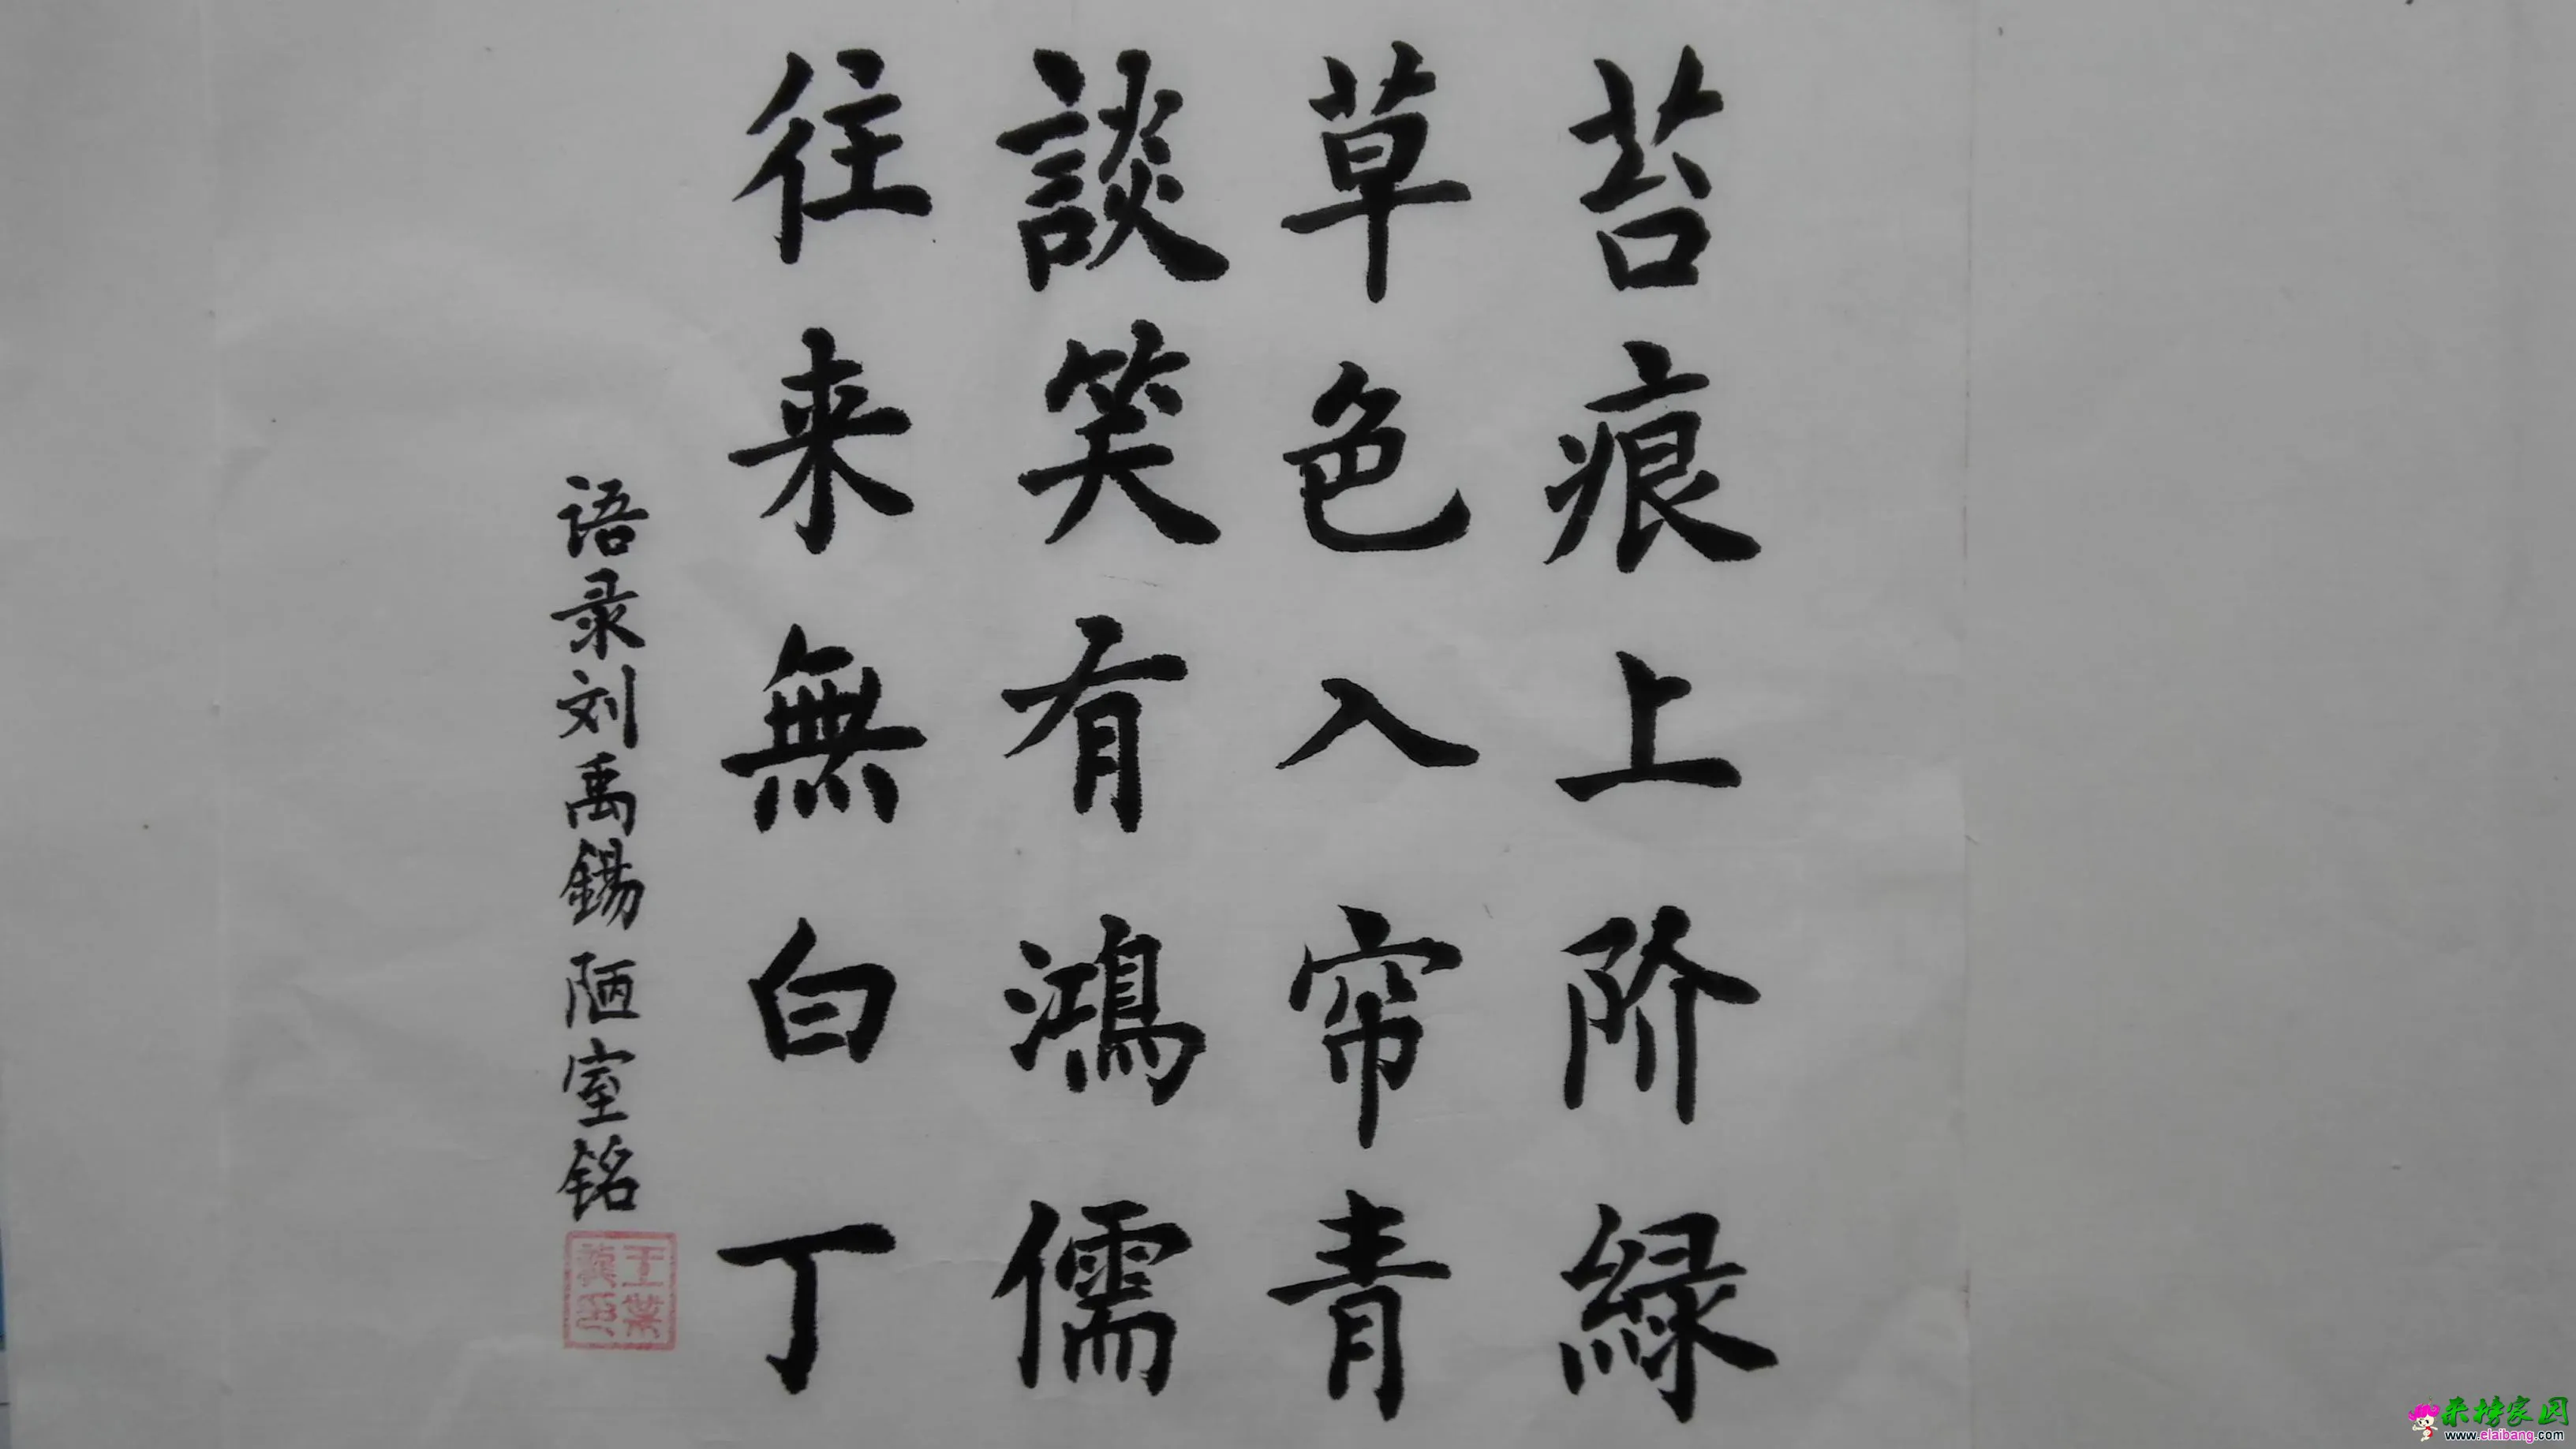 苔痕上阶緑
草色入帘青
談笑有鴻儒
往来無白丁
语录刘禹錫陋室铭
来榜家园
www.elaibang.com